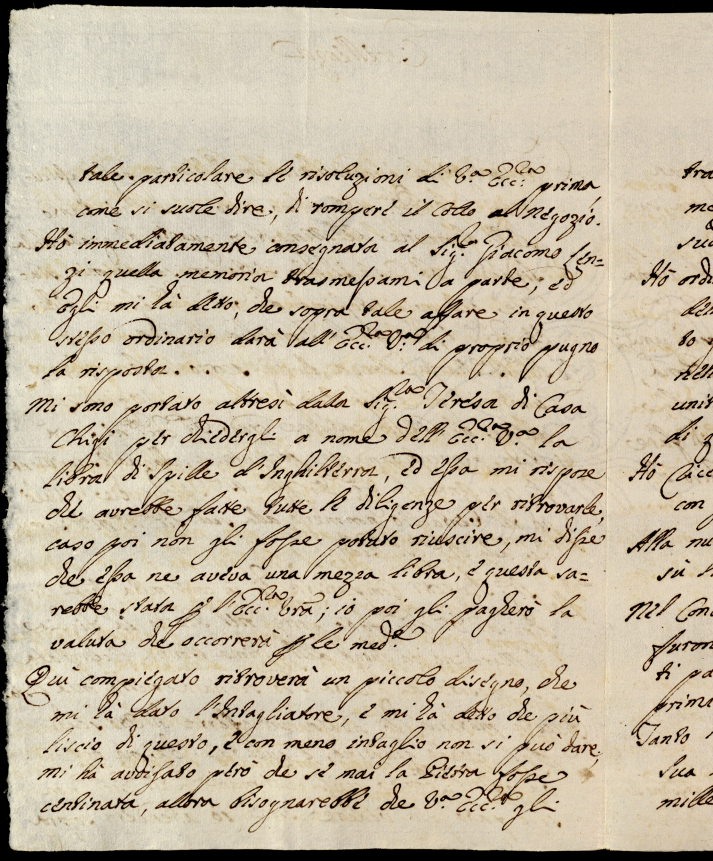 tale particolare le risoluzioni di V.ª Ecc.ª prima
come si suole dire, di romperè il Collo al Negozio.
Hò immediatamente consegnata al Sig.re Giacomo Sen-
zi quella memoria trasmessami a parte; ed
egli mi hà detto, che sopra tale affare in questo
stesso ordinario darà all' Ecc.ª V.ª di proprio pugno
la risposta. . . .
Mi sono portato altresì dalla Sig.ra Teresa di Casa
Chigi per chiedergli a nome dell' Ecc.ª V.ª la
libra di Spille d'Inghilterra, ed essa mi rispose
che avrebbe fatte tutte le diligenze per ritrovarle,
caso poi non gli fosse potuto riuscire, mi disse
che essa ne aveva una mezza libra, e questa sa-
rebbe stata p l'Ecc.ª Vrã; io poi gli pagherò la
valuta che occorrerà p le med.e
Quì compiegato ritroverà un piccolo disegno, che
mi hà dato l'Intagliatore, e mi hà detto che più
liscio di questo, e con meno intaglio non si può dare;
mi hà avvisato però che se mai la Pietra fosse
centinata, allora bisognarebbe che V.ª Ecc.ª gli
tra
me
sua
Hò ordi
den
to s
nell
unit
di q
Hò
con
Alla nu
sù
Nel Con
furon
ti pa
prima
Tanto
Sua
mille